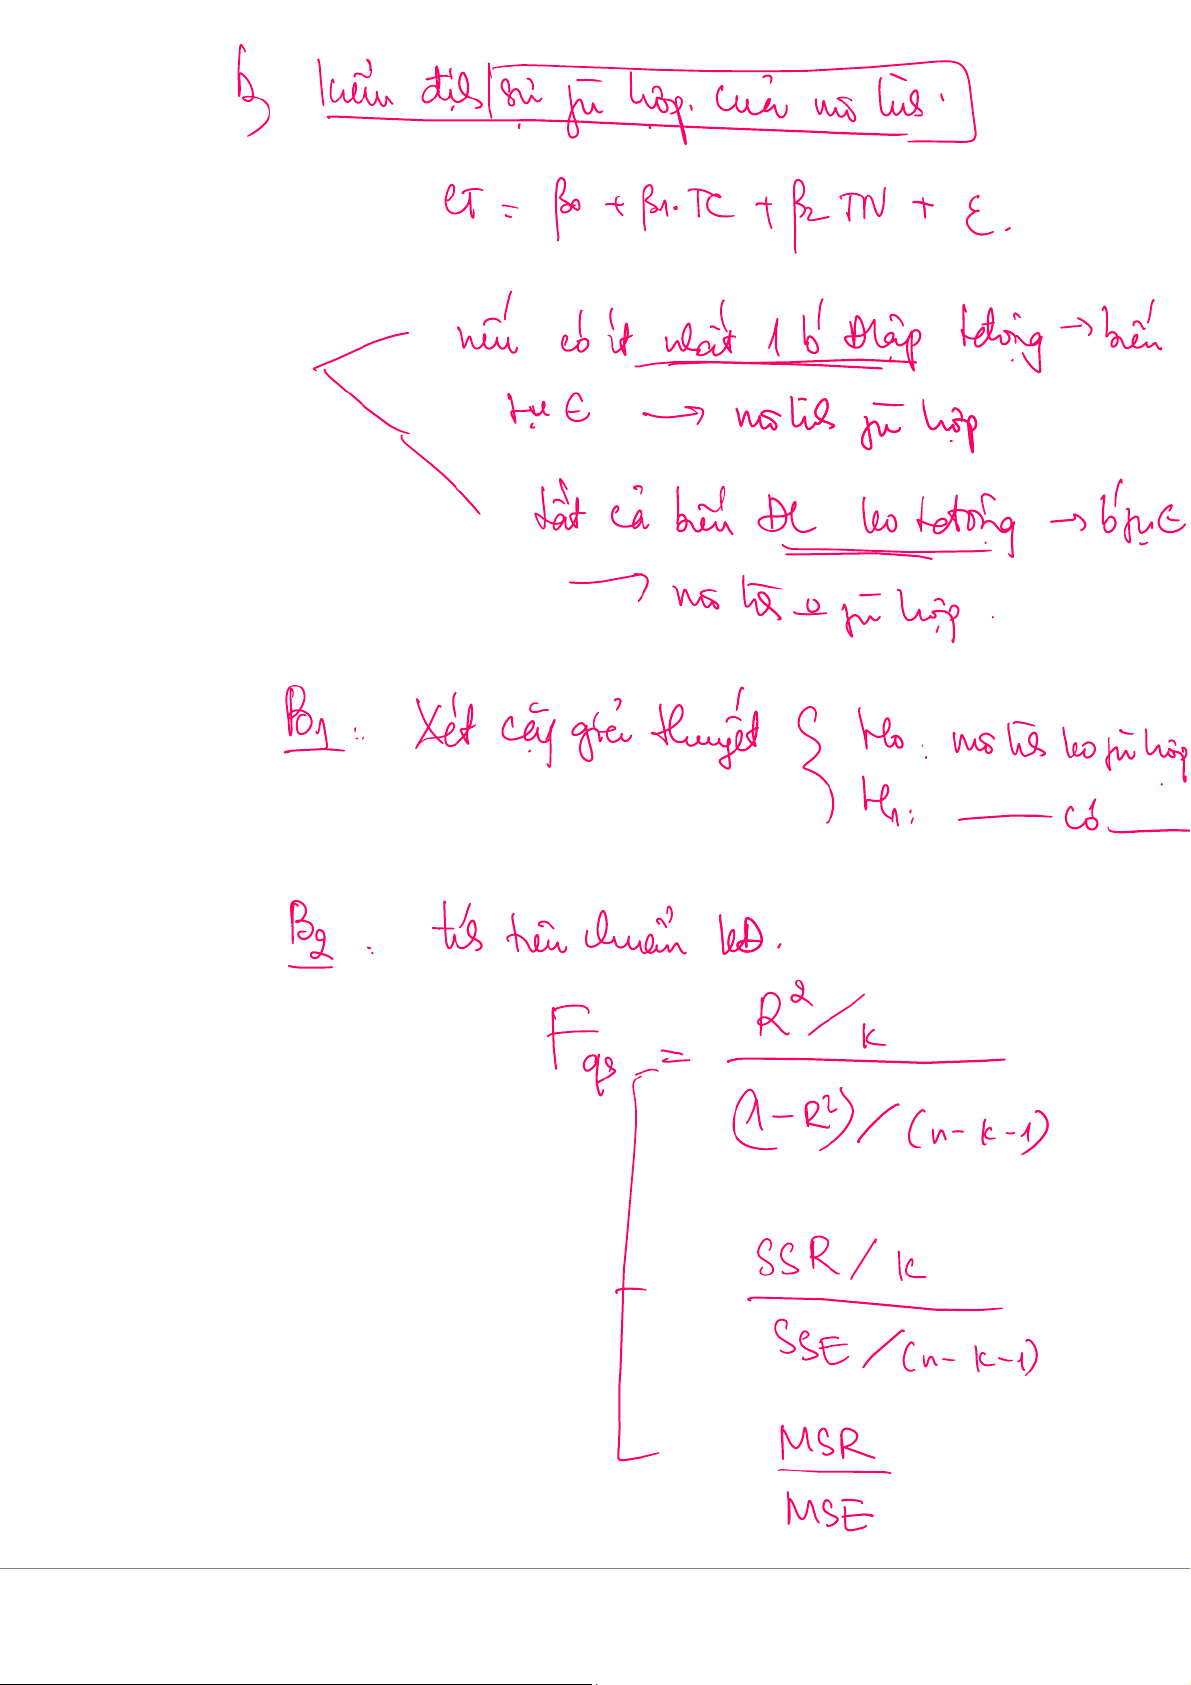 b) kiểm định sự phù hợp của mô hình.
CT = β0 + β1.TC + β2 TN + ε.
nếu có ít nhất 1 b độc lập tđộng → biến
phụ ∈ → mô hình phù hợp
tất cả biến ĐL ko tđộng → b phụ ∈
→ mô hình o phù hợp.
B1: Xét cặp giả thuyết { H0: mô hình ko phù hợp
H1: —— có ——
B2: tính tiêu chuẩn kđ.
Fqs = R²/k
(1-R²)/(n-k-1)
SSR/k
SSE/(n-k-1)
MSR
MSE